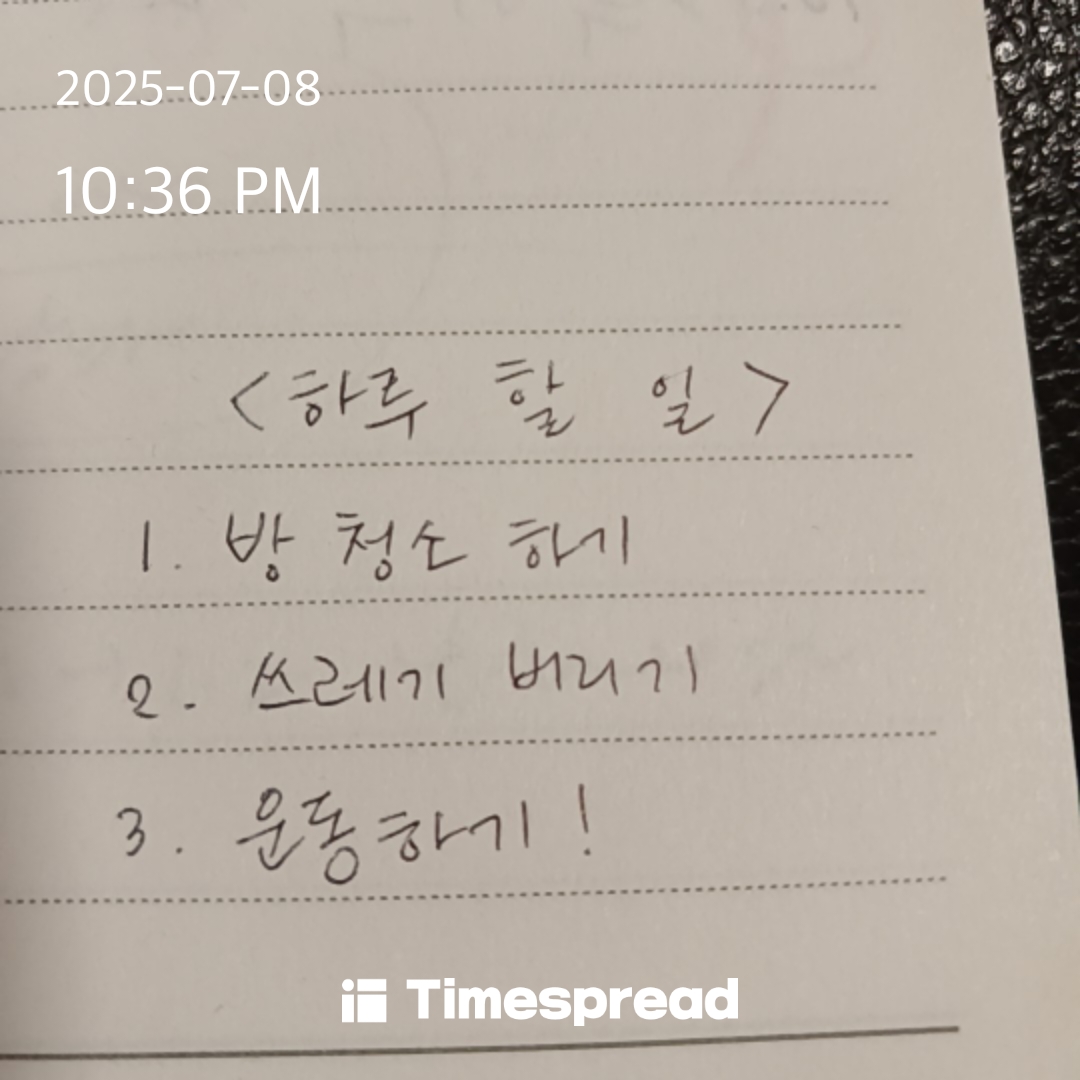 2025-07-08
10:36 PM
<하루 할 일>
1. 방 청소 하기
2. 쓰레기 버리기
3. 운동하기!
Timespread